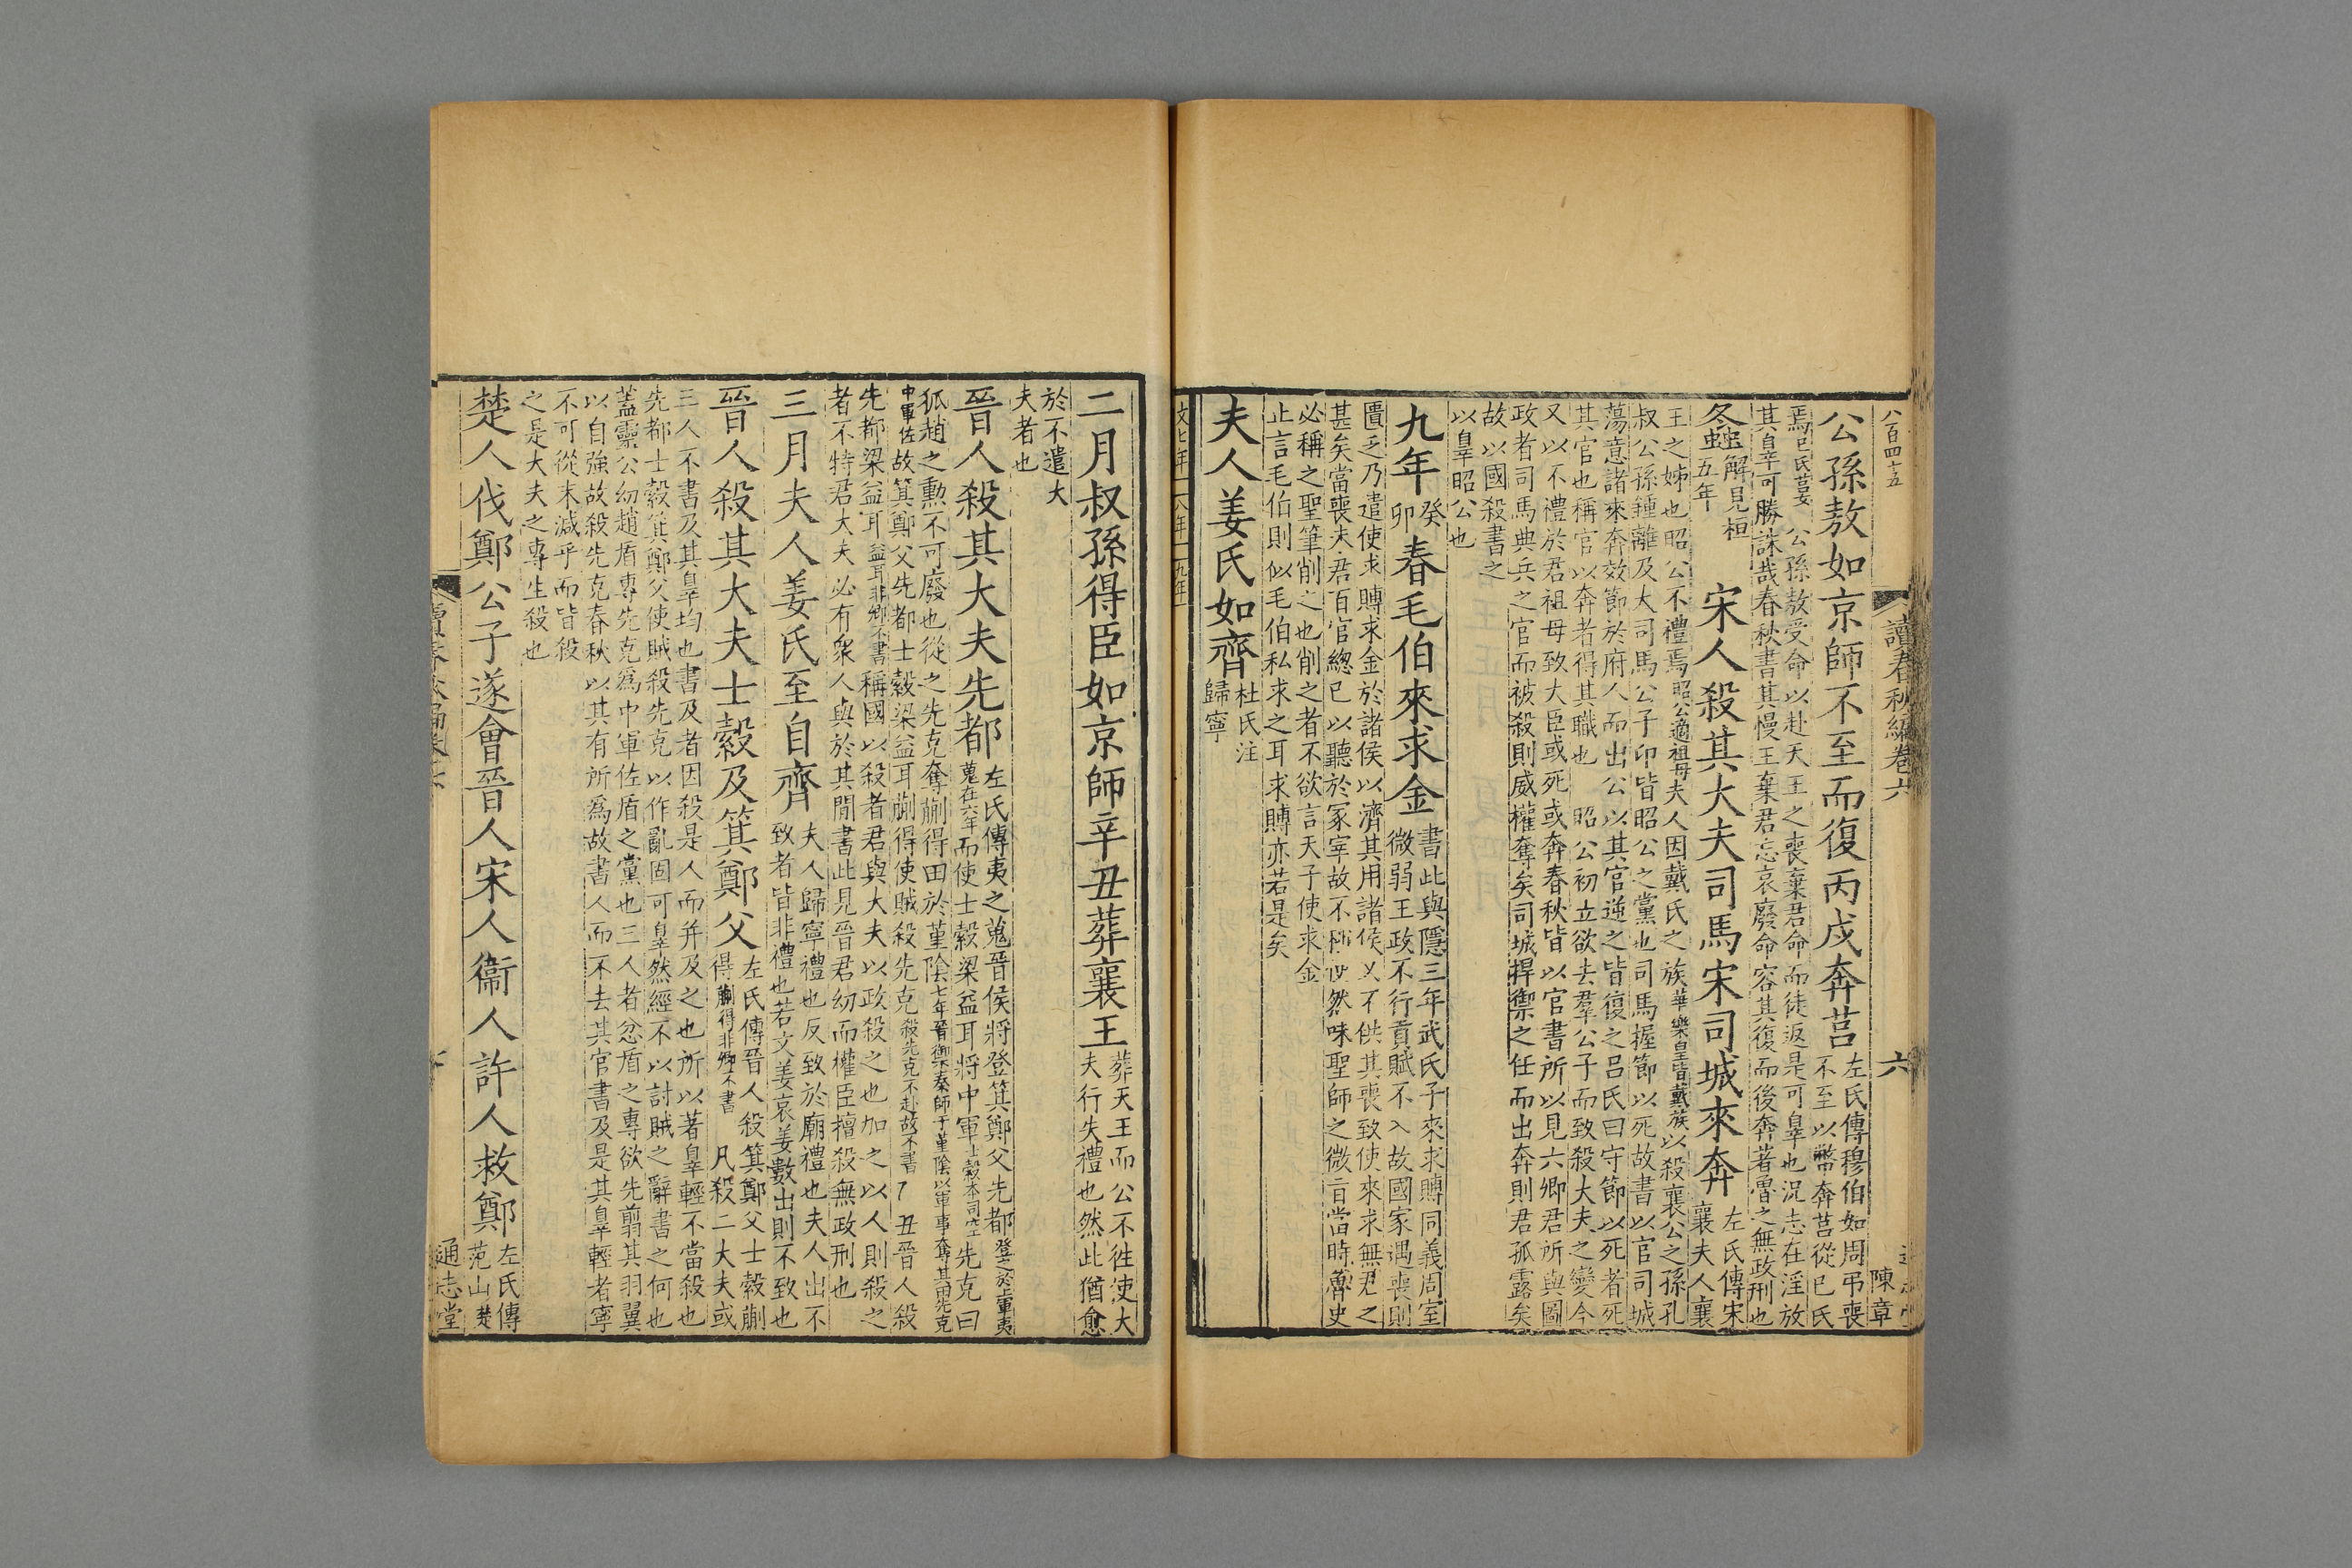 八百四十五
讀春秋編卷六
六
陳章
公孫敖如京師不至而復丙戌奔莒
左氏傳穆伯如周弔喪
不至以幣奔莒從己氏
焉己氏莒女 公孫敖受命以赴天王之喪棄君命而徒返是可辠也況志在淫放
其辠可勝誅哉春秋書其慢王棄君忘哀廢命容其復而後奔著魯之無政刑也
螽
解見桓
五年
宋人殺其大夫司馬宋司城來奔
左氏傳宋
襄夫人襄
王之姊也昭公不禮焉昭公適祖母夫人因戴氏之族華樂皇皆戴族以殺襄公之孫孔
叔公孫鍾離及大司馬公子卬皆昭公之黨也司馬握節以死故書以官司城
蕩意諸來奔效節於府人而出公以其官逆之皆復之呂氏曰守節以死者死
其官也稱官以奔者得其職也 昭公初立欲去羣公子而致殺大夫之變今
又以不禮於君祖母致大臣或死或奔春秋皆以官書所以見六卿君所與圖
政者司馬典兵之官而被殺則威權奪矣司城捍禦之任而出奔則君孤露矣
故以國殺書之
以辠昭公也
九年
癸
卯
春毛伯來求金
書此與隱三年武氏子來求賻同義周室
微弱王政不行貢賦不入故國家遇喪則
匱乏乃遣使求賻求金於諸侯以濟其用諸侯又不供其喪致使來求無君之
甚矣當喪未君百官總已以聽於冢宰故不稱使然味聖師之微旨當時魯史
必稱之聖筆削之也削之者不欲言天子使求金
止言毛伯則似毛伯私求之耳求賻亦若是矣
夫人姜氏如齊
杜氏注
歸寧
文七年 八年 九年
二月叔孫得臣如京師辛丑葬襄王
葬天王而公不徃使大
夫行失禮也然此猶愈
於不遣大
夫者也
晉人殺其大夫先都
左氏傳夷之蒐晉侯將登箕鄭父先都登之於上軍夷
蒐在六年而使士縠梁益耳將中軍士縠本司空先克曰
狐趙之勳不可廢也從之先克奪蒯得田於堇陰七年晉禦秦師于堇陰以軍事奪其田先克
中軍佐故箕鄭父先都士縠梁益耳蒯得使賊殺先克殺先克不赴故不書 丑晉人殺
先都梁益耳益耳非卿不書稱國以殺者君與大夫以政殺之也加之以人則殺之
者不特君大夫必有衆人與於其閒書此見晉君幼而權臣擅殺無政刑也
三月夫人姜氏至自齊
夫人歸寧禮也反致於廟禮也夫人出不
致者皆非禮也若文姜哀姜數出則不致也
晉人殺其大夫士縠及箕鄭父
左氏傳晉人殺箕鄭父士縠蒯
得蒯得非卿不書 凡殺二大夫或
三人不書及其辠均也書及者因殺是人而并及之也所以著辠輕不當殺也
先都士縠箕鄭父使賊殺先克以作亂固可辠然經不以討賊之辭書之何也
蓋靈公幼趙盾專先克爲中軍佐盾之黨也三人者忿盾之專欲先翦其羽翼
以自強故殺先克春秋以其有所爲故書人而不去其官書及是其辠輕者寧
不可從末減乎而皆殺
之是大夫之專生殺也
楚人伐鄭公子遂會晉人宋人衞人許人救鄭
左氏傳
范山楚
通志堂